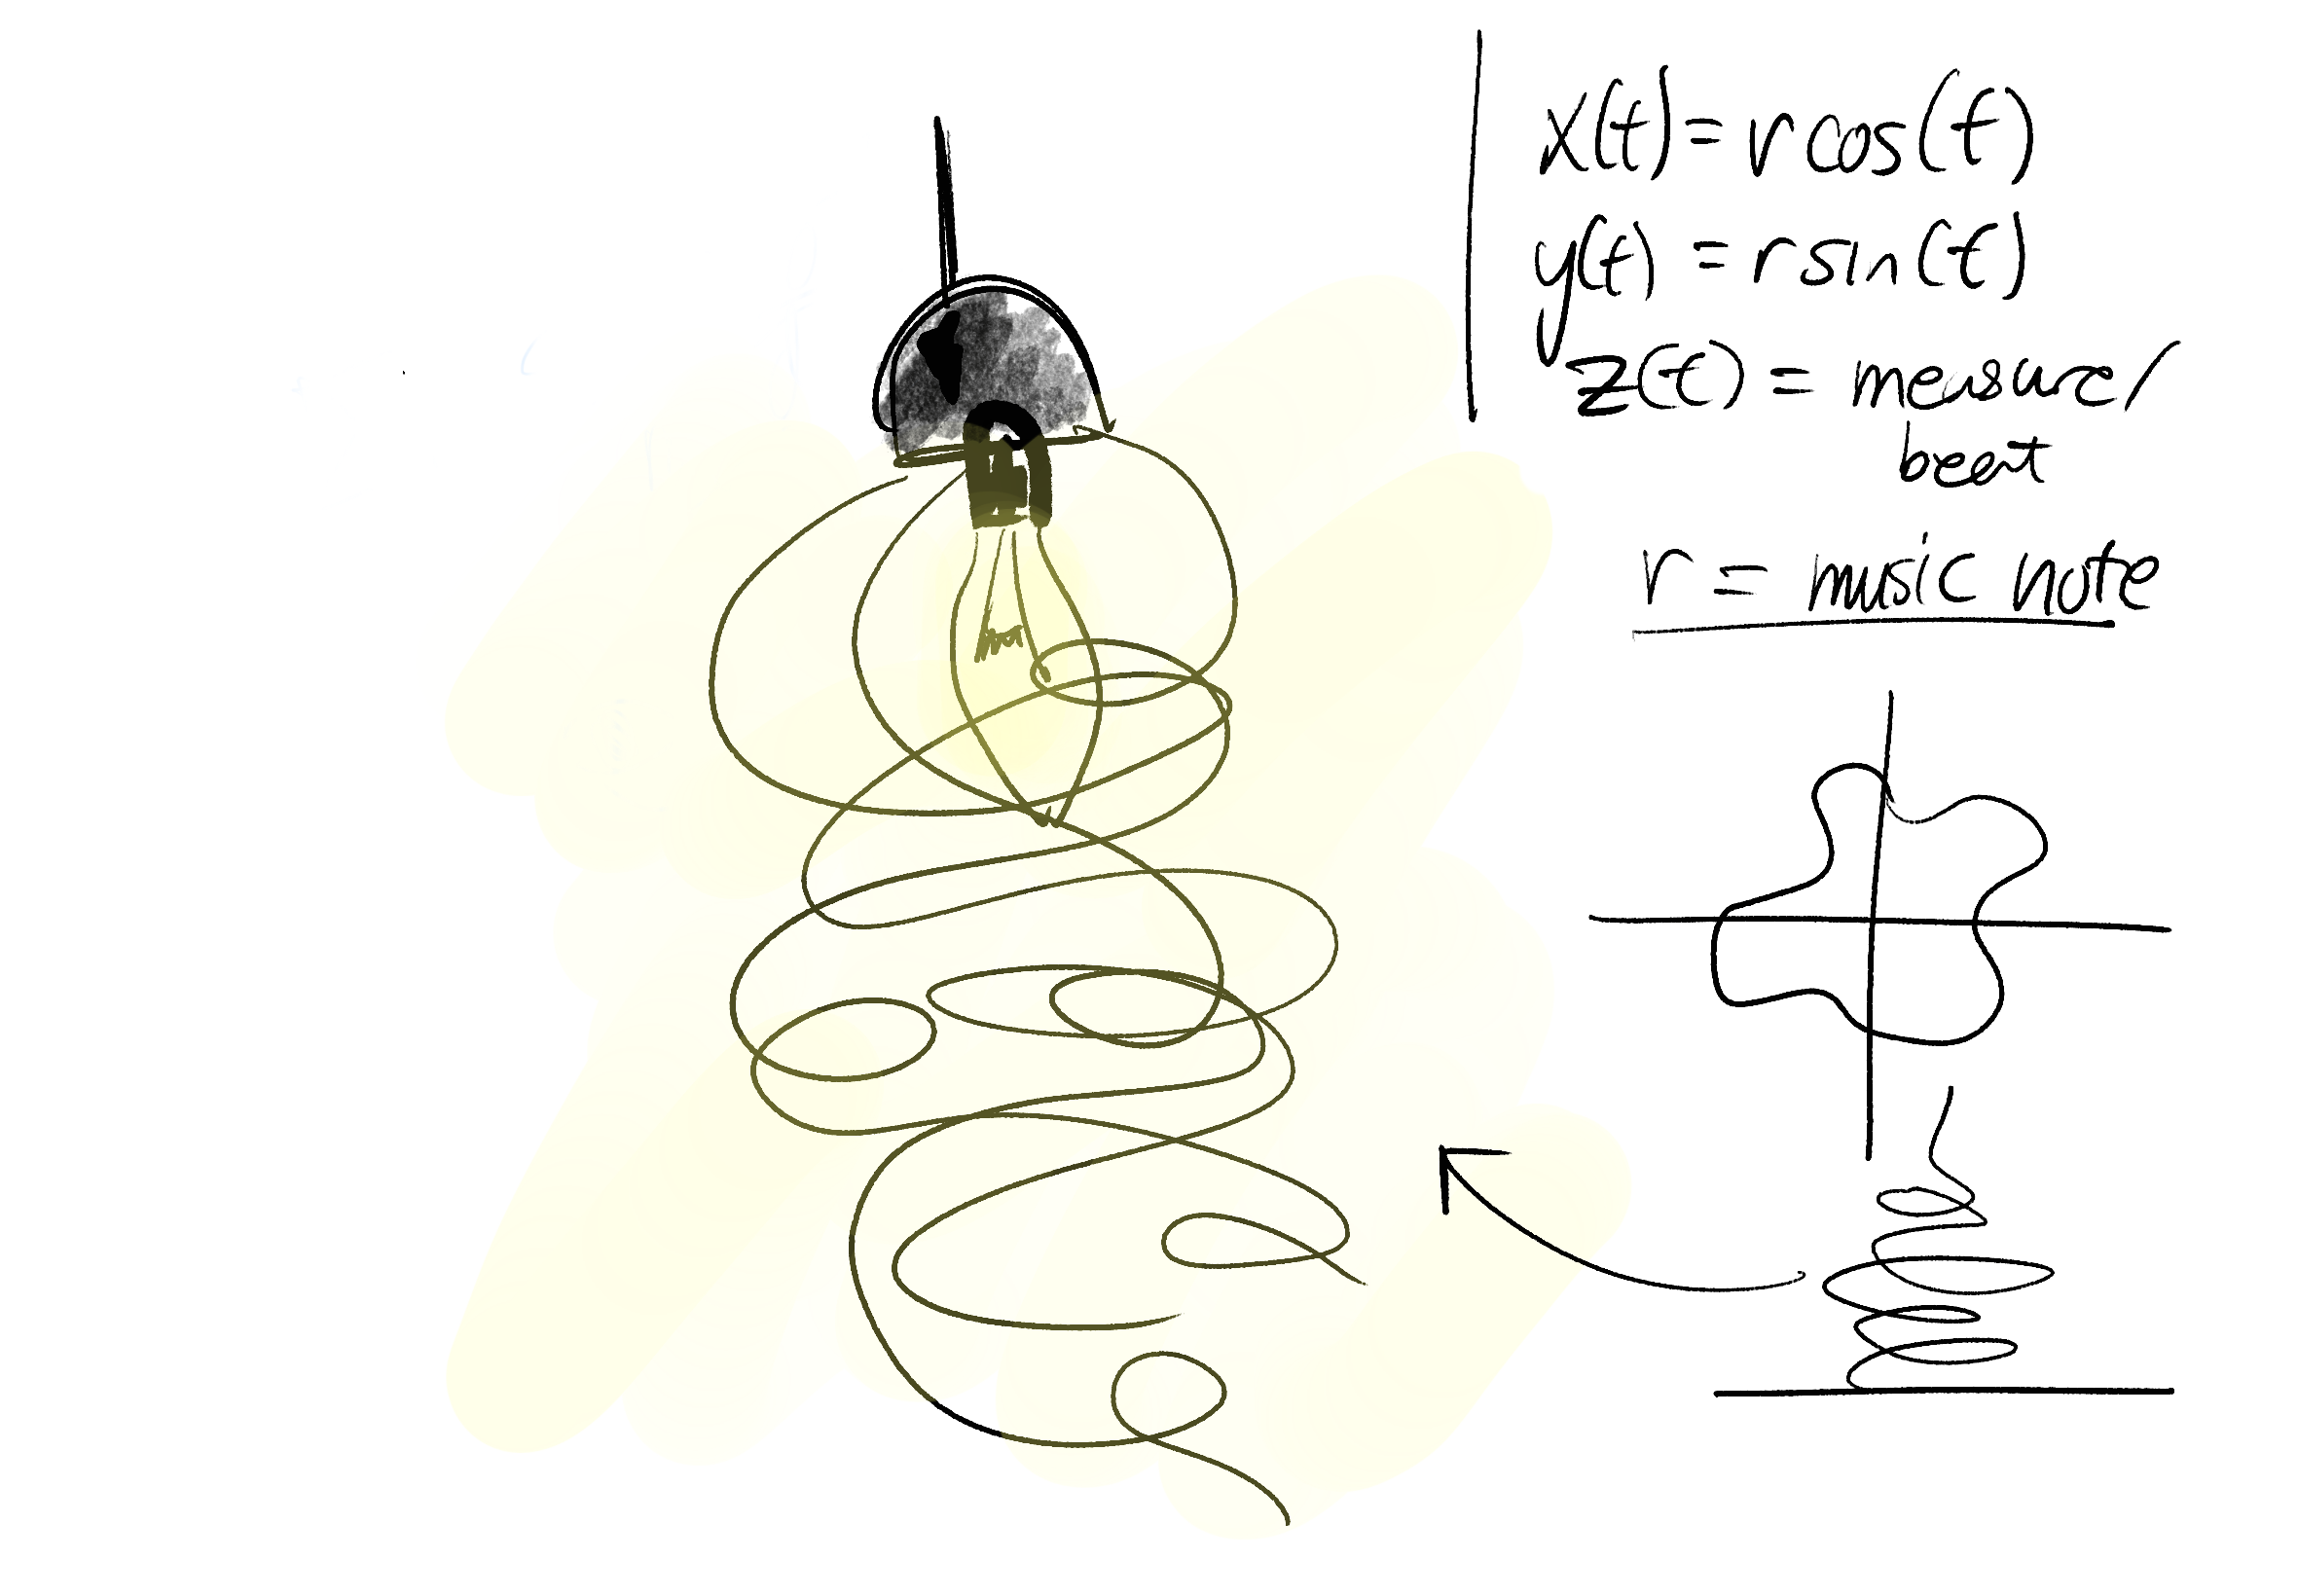 x(t) = r cos(t)
y(t) = r sin(t)
z(t) = measure/
beat
r = music note